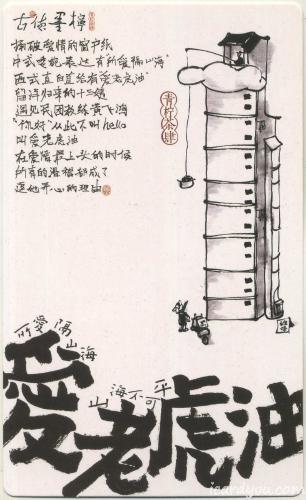 古德墨柠
捅破爱情的窗户纸
中式 表达"有所爱隔山海"
西式直白 有爱老虎油"
留洋归来的十三姨
遇见民团教练黄飞鸿
"你好"从此不叫hello
叫爱老虎油
在爱情最上头的时候
所有的 都成了
逗她开心的理由
青柠茶肆
所愛隔山海
山海不可平
愛老虎油
icardyou.com